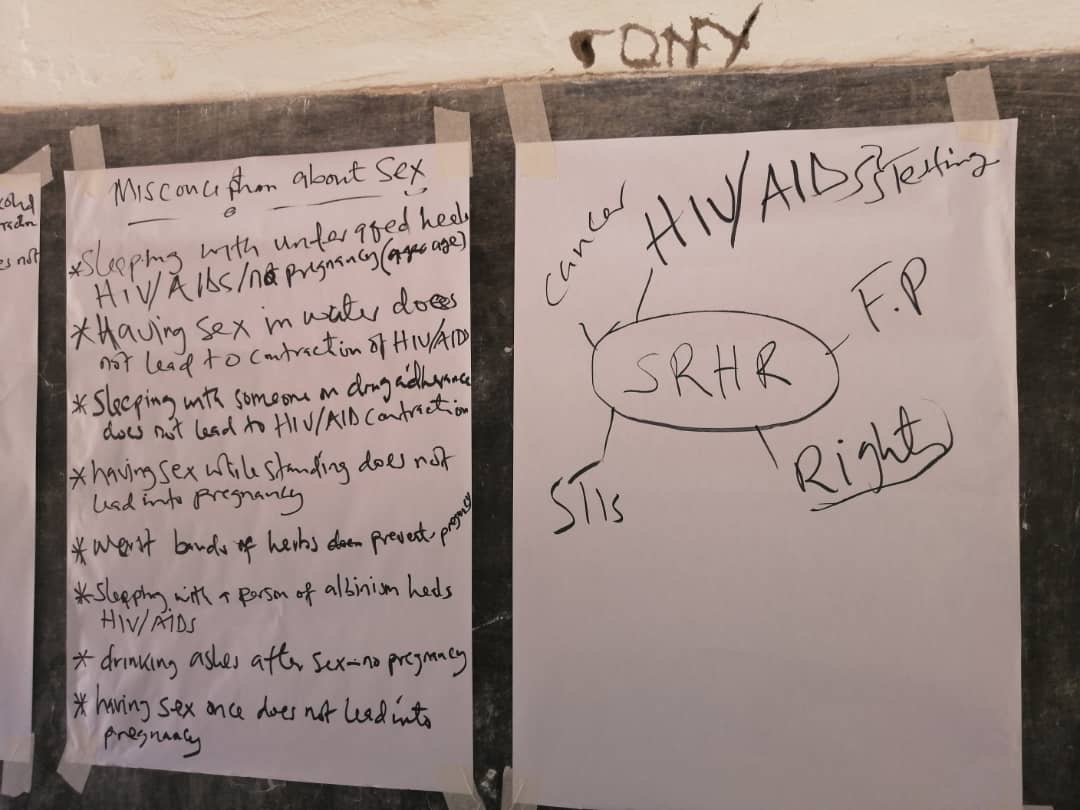 TONY
Misconception about Sex
*Sleeping with underaged heels
HIV/AIDS/no pregnancy (age)
* Having sex in water does
not lead to contraction of HIV/AIDS
* Sleeping with someone on drug adherance
does not lead to HIV/AID contraction
* having sex while standing does not
lead into pregnancy
* waist bands of herbs prevent pregnancy
*Sleeping with a person of albinism heels
HIV/AIDS
* drinking ashes after sex-no pregnancy
* having sex once does not lead into
pregnancy
cancer
HIV/AIDS}Testing
F.P
SRHR
Rights
STIs